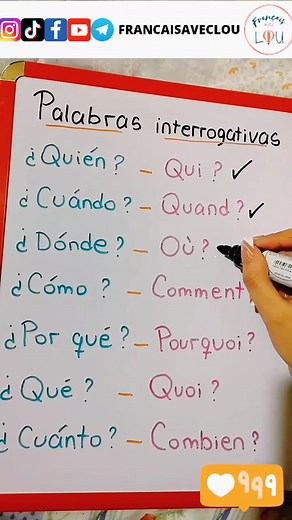 FRANCAISAVECLOU
Français
avec
LOU
Palabras interrogativas
¿Quién? – Qui ? ✓
¿Cuándo? – Quand? ✓
¿Dónde? – Où?
¿Cómo ? – Comment
¿Por qué? – Pourquoi?
¿Qué ? – Quoi ?
¿Cuánto? – Combien?
999